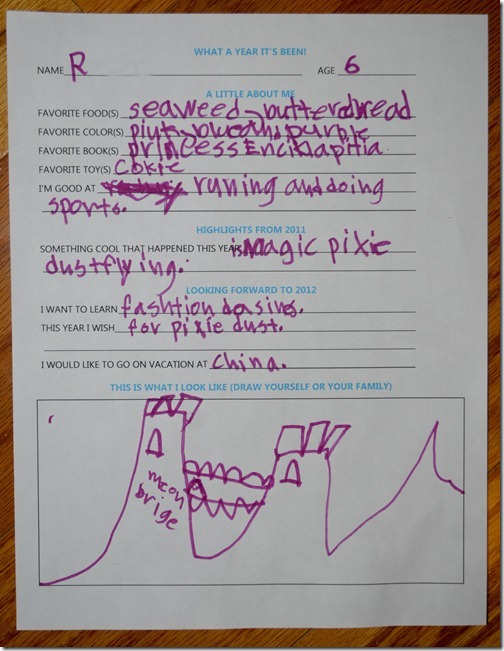 WHAT A YEAR IT'S BEEN!
NAME R AGE 6
A LITTLE ABOUT ME
FAVORITE FOOD(S) seaweed butterdread
FAVORITE COLOR(S) pink blue and purple
FAVORITE BOOK(S) princess Enciklapitia
FAVORITE TOY(S) Cokie
I'M GOOD AT runing and doing
sports.
HIGHLIGHTS FROM 2011
SOMETHING COOL THAT HAPPENED THIS YEAR is Magic pixie
dust flying.
LOOKING FORWARD TO 2012
I WANT TO LEARN fashtion dasins.
THIS YEAR I WISH for pixie dust.
I WOULD LIKE TO GO ON VACATION AT china.
THIS IS WHAT I LOOK LIKE (DRAW YOURSELF OR YOUR FAMILY)
moon
brige